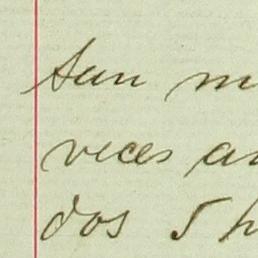 san m
veces a
dos 5 h